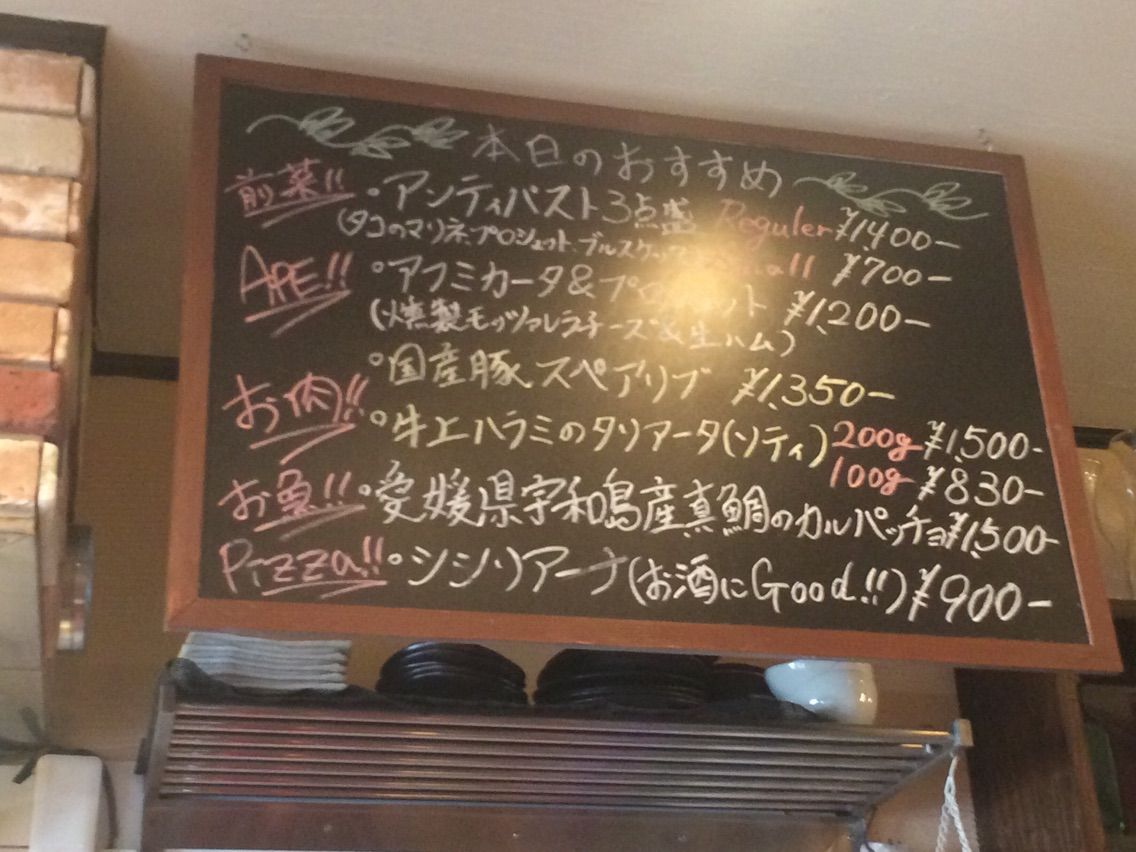 本日のおすすめ
前菜!! ・アンティパスト3点盛 Reguler ¥1,400-
(タコのマリネ、プロシュット、ブルスケッタ) Small ¥700-
APE!! ・アフミカータ&プロシュット ¥1,200-
(燻製モッツァレラチーズ&生ハム)
・国産豚スペアリブ ¥1,350-
お肉!! ・牛上ハラミのタリアータ(ソティ) 200g ¥1,500-
100g ¥830-
お魚!! ・愛媛県宇和島産真鯛のカルパッチョ ¥1,500-
Pizza!! ・シシリアーナ(お酒にGood!!) ¥900-